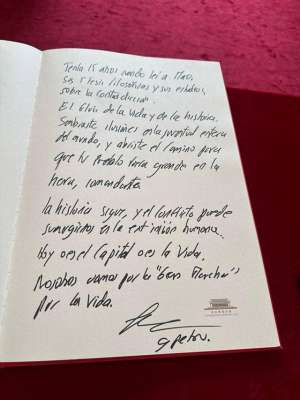 Tenía 15 años cuando leí a Mao,
Sus 5 tesis filosóficas y sus estudios,
sobre la contradicción.
El fluir de la vida y de la historia.
Sembraste ilusiones en la juventud entera
del mundo, y abriste el camino para
que tu Pueblo fuera grande en la
hora, comandante.
la historia sigue, y el conflicto puede
sumergirnos en la extinción humana.
Hoy o es el Capital o es la Vida.
Nosotros vamos por la "Gran Marcha"
por la vida.
G Petro.